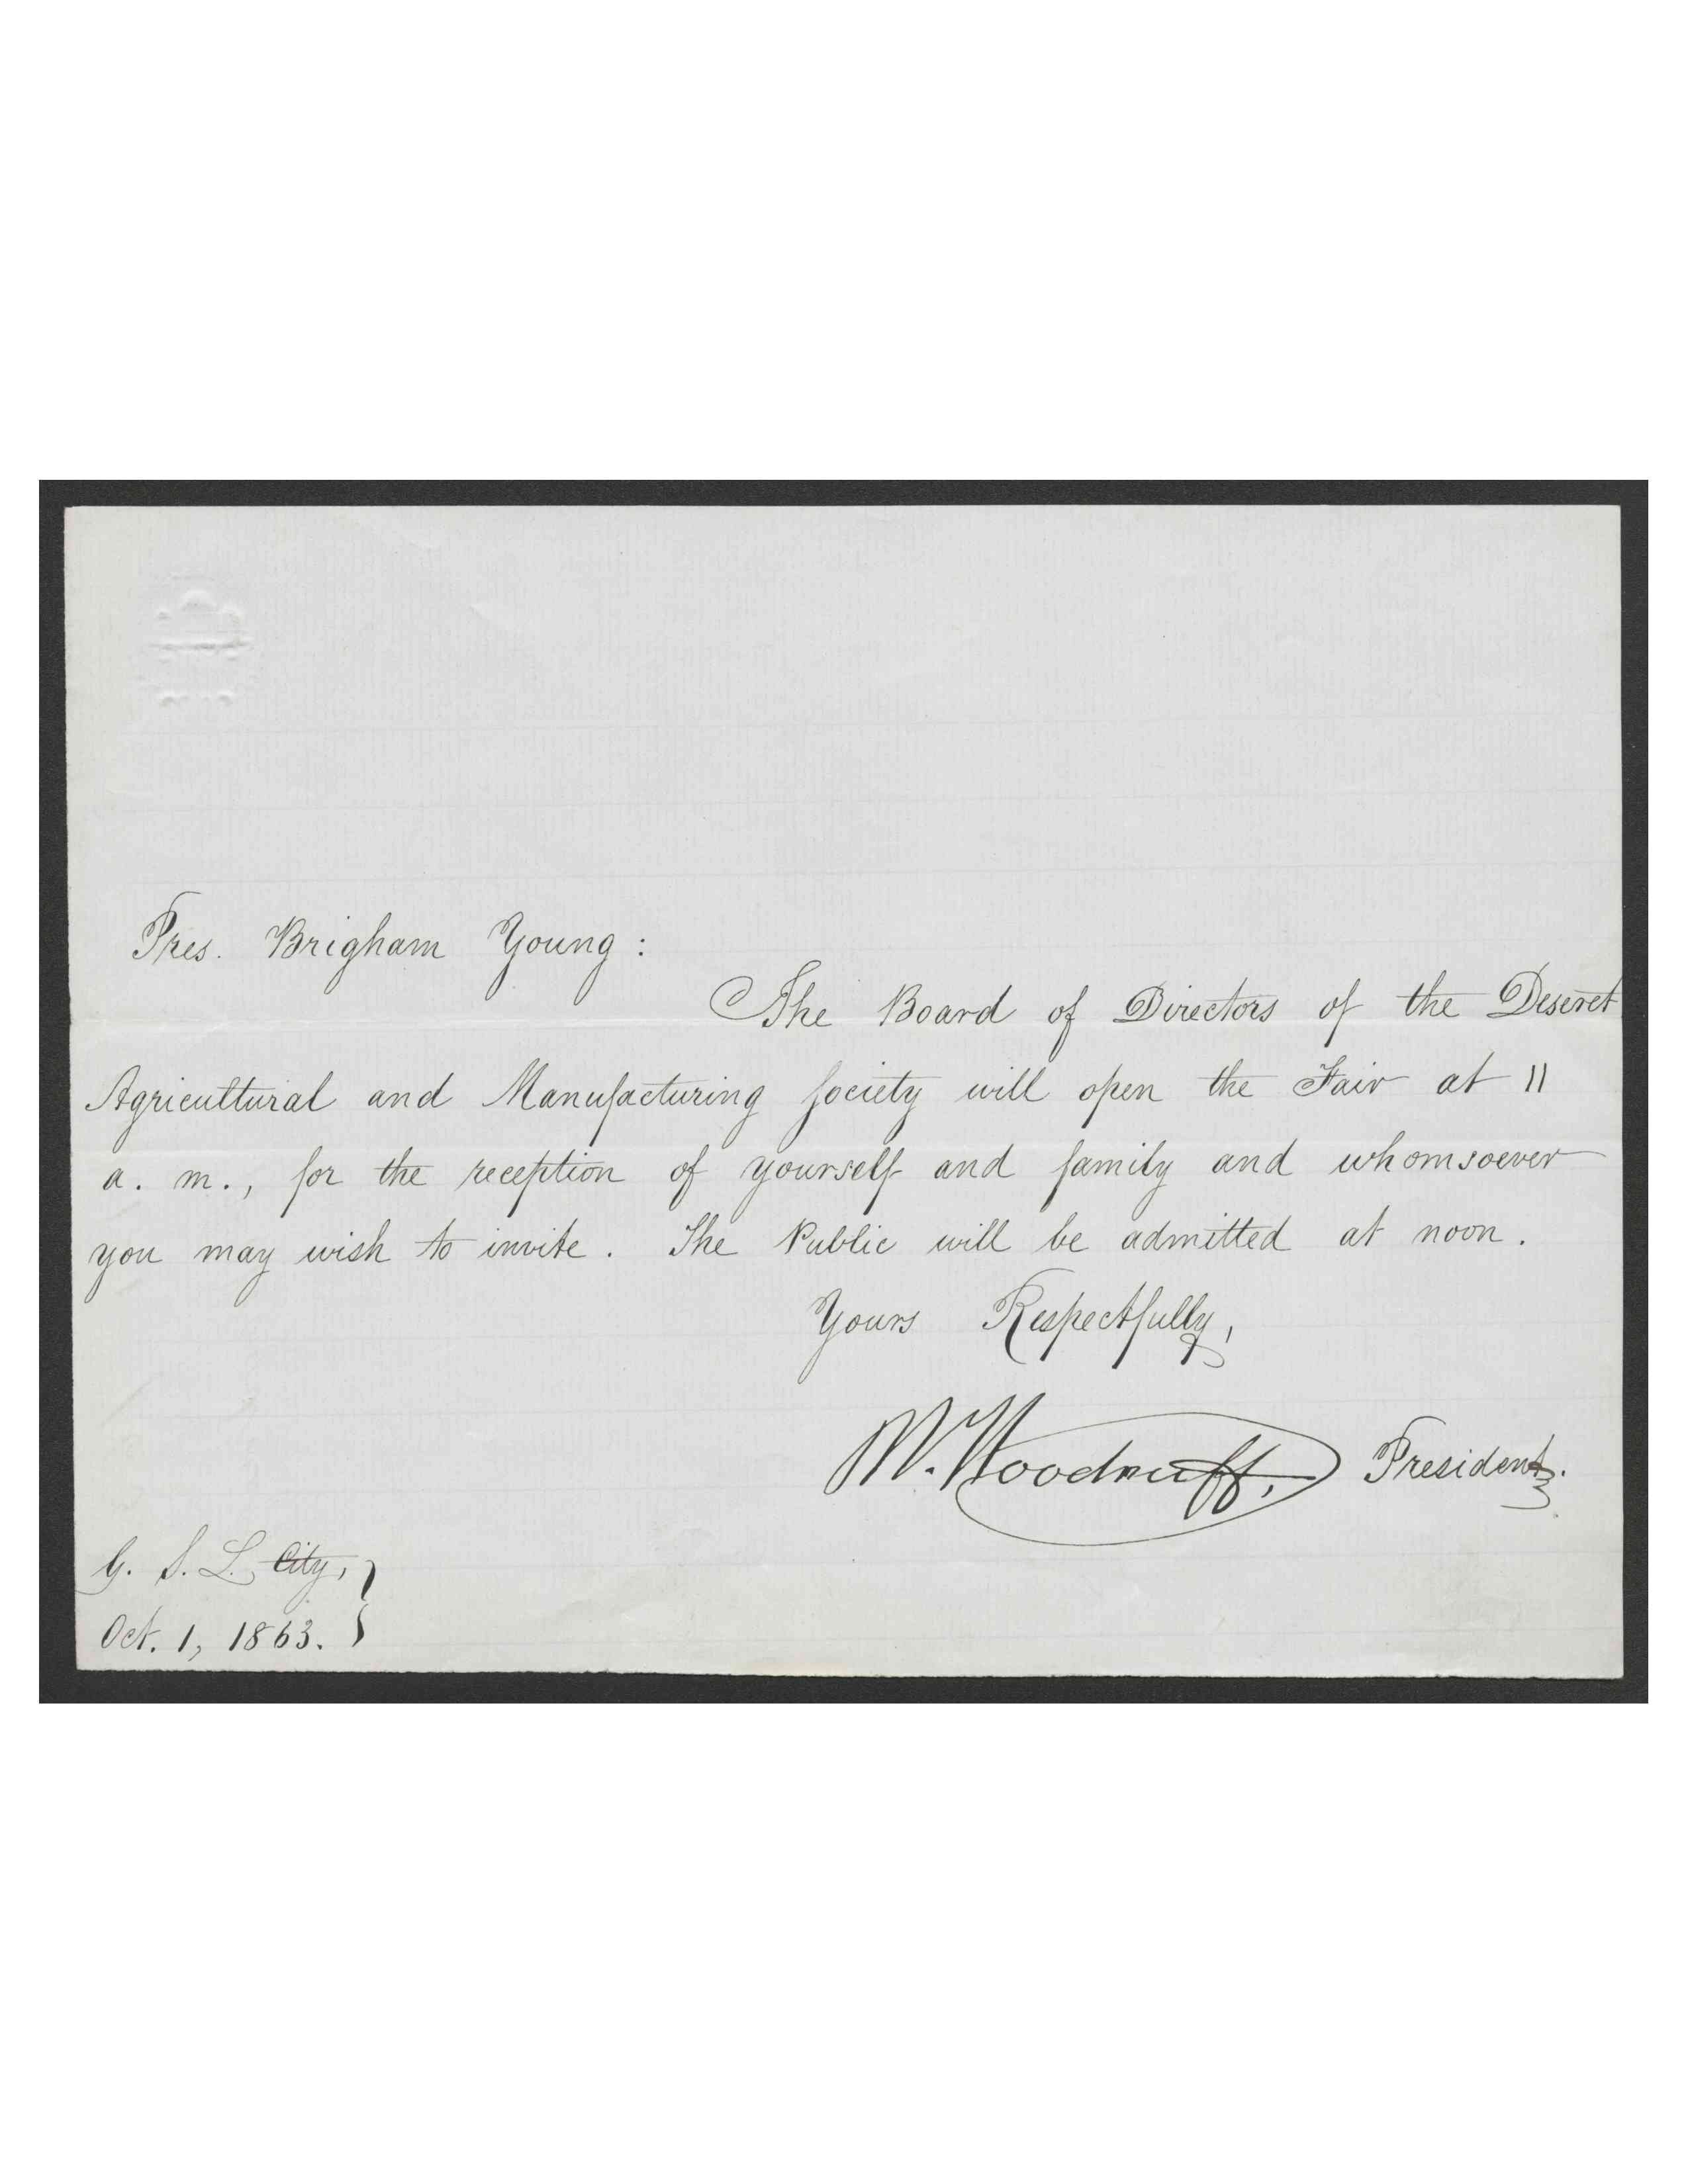 Pres. Brigham Young:
The Board of Directors of the Deseret
Agricultural and Manufacturing Society will open the Fair at 11
a. m., for the reception of yourself and family and whomsoever
you may wish to invite. The Public will be admitted at noon.
Yours Respectfully,
W. Woodruff, President.
G. S. L. City,
Oct. 1, 1863.